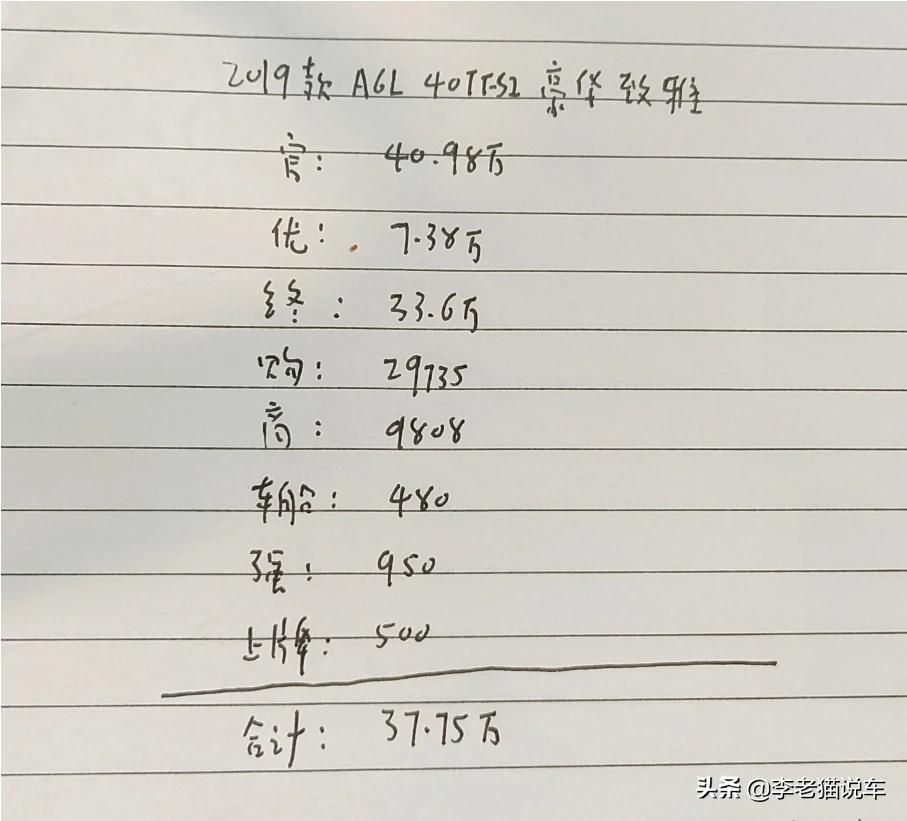 2019款 A6L 40TFSI 豪华致雅
官: 40.98万
优: 7.38万
终: 33.6万
购: 29735
商: 9808
车船: 480
强: 950
上牌: 500
合计: 37.75万
头条 @李老猫说车